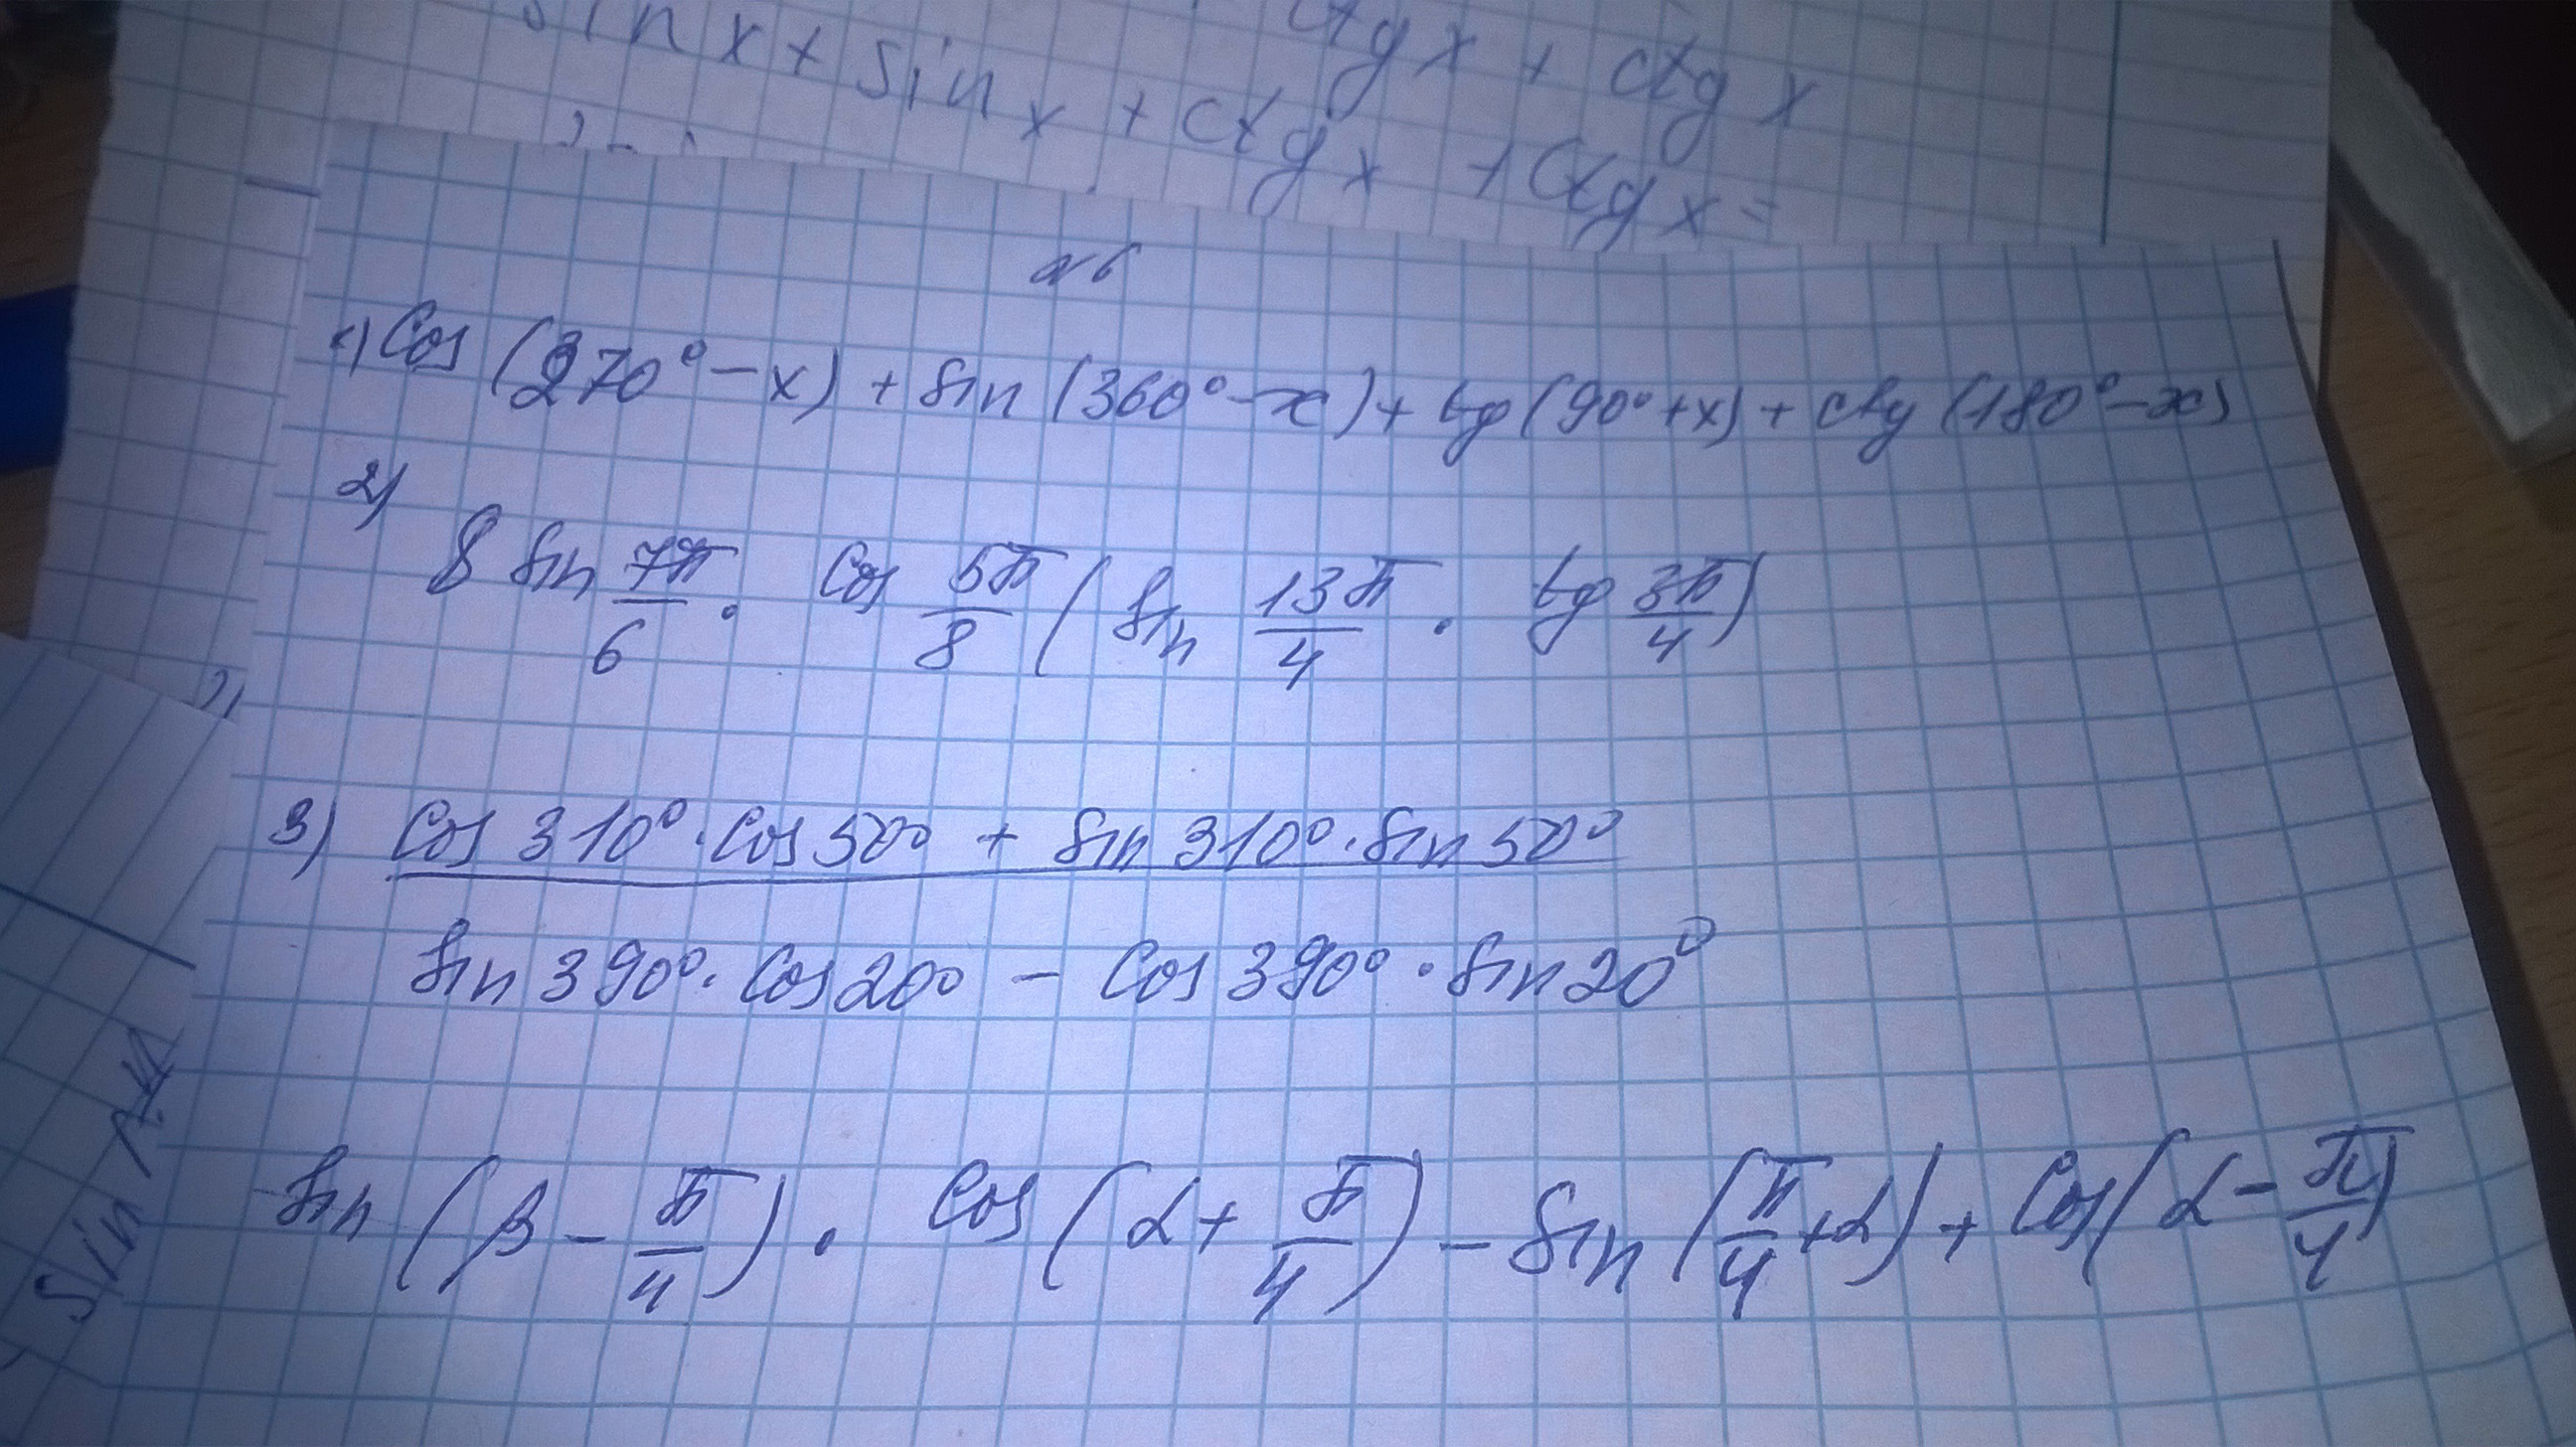 ctg x + ctg x
sin x + sin x + ctg x + ctg x =
№6
1) Cos (270° - x) + sin (360° - x) + tg (90° + x) + ctg (180° - x)
2) 8 sin 7π/6 · cos 5π/8 (sin 13π/4 · tg 3π/4)
3) (cos 310° · cos 50° + sin 310° · sin 50°) / (sin 390° · cos 20° - cos 390° · sin 20°)
sin (β - π/4) · cos (α + π/4) - sin (π/4 + α) + cos (α - π/4)
sin